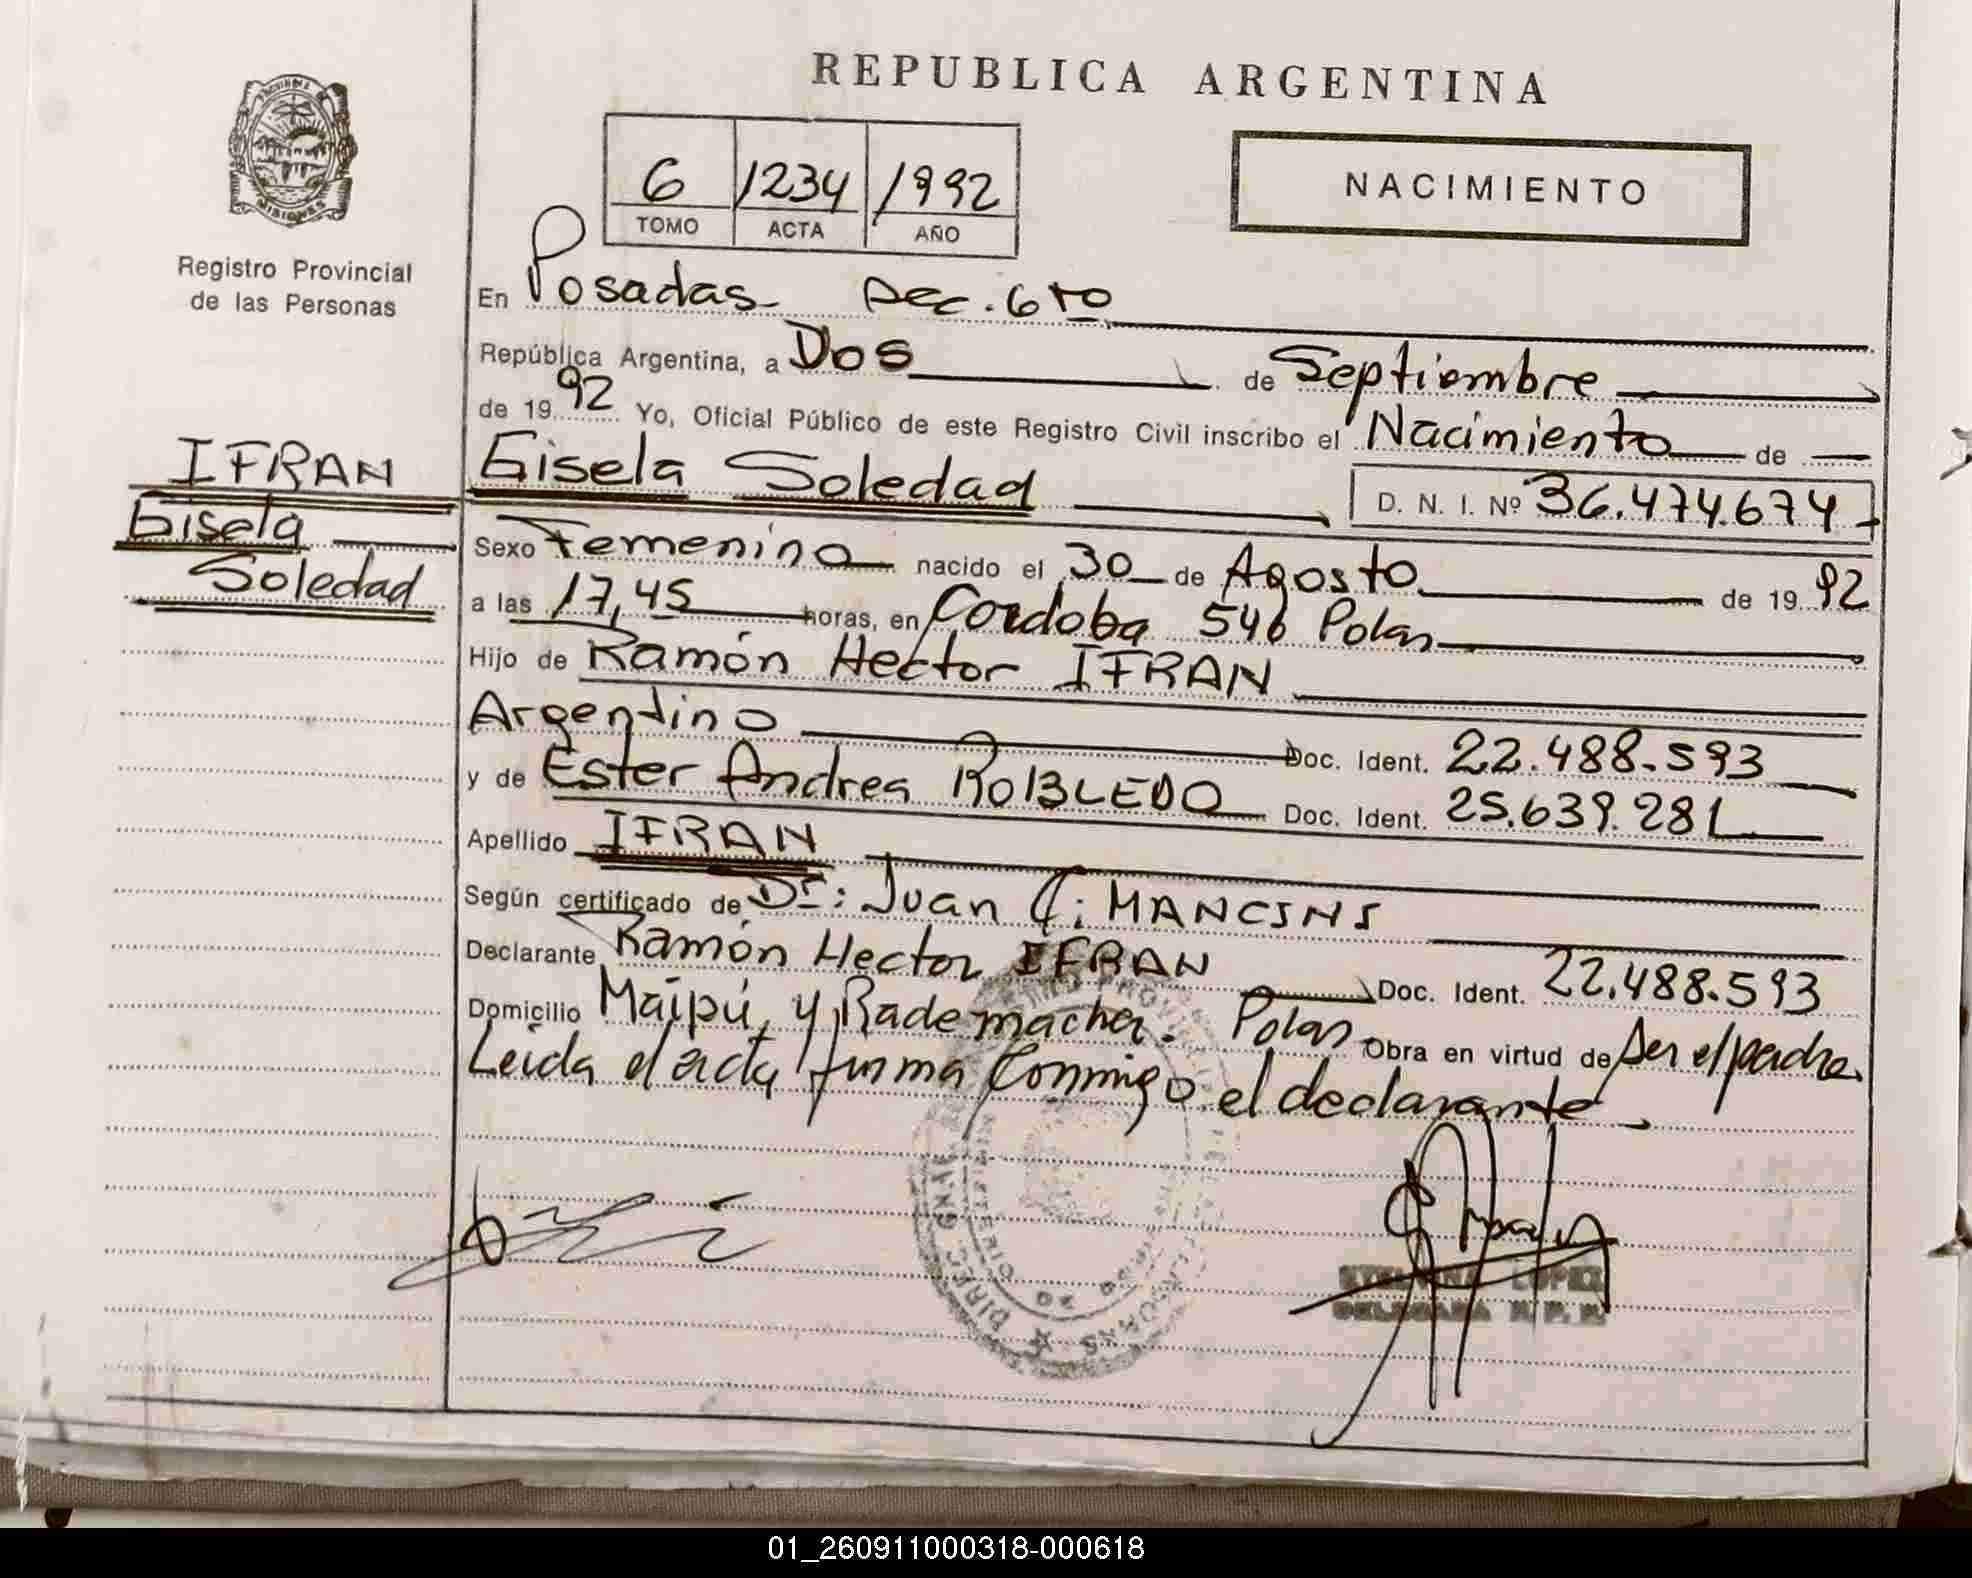 REPUBLICA ARGENTINA
6 1234 1992
TOMO ACTA AÑO
NACIMIENTO
MISIONES
Registro Provincial
de las Personas
En Posadas Sec. 6to
República Argentina, a Dos de Septiembre
de 1992 Yo, Oficial Público de este Registro Civil inscribo el Nacimiento de
IFRAN
Gisela
Soledad
Gisela Soledad D. N. I. Nº 36.474.674
Sexo Femenino nacido el 30 de Agosto de 1992
a las 17,45 horas, en Cordoba 546 Pdas
Hijo de Ramón Hector IFRAN
Argentino Doc. Ident. 22.488.593
y de Ester Andrea ROBLEDO Doc. Ident. 25.639.281
Apellido IFRAN
Según certificado de Dr: Juan C: MANCINI
Declarante Ramón Hector IFRAN Doc. Ident. 22.488.593
Domicilio Maipú y Rademacher. Pdas Obra en virtud de ser el padre.
Leida el acta firma conmigo el declarante.
LOPEZ
DELEGADA R. P. P.
01_260911000318-000618